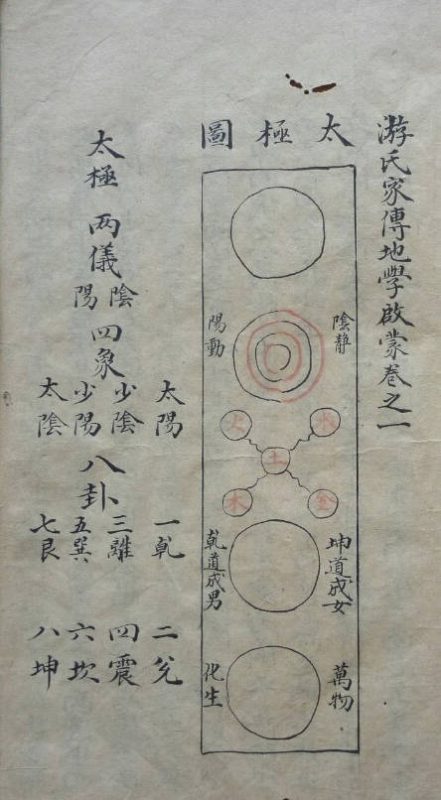 游氏家傳地學啟蒙卷之一
太極圖
陰静
陽動
水
火
土
金
木
坤道成女
乾道成男
萬物
化生
太極 两儀 陰陽 四象 太陽 少陰 少陽 太陰 八卦 一乾 二兌 三離 四震 五巽 六坎 七艮 八坤